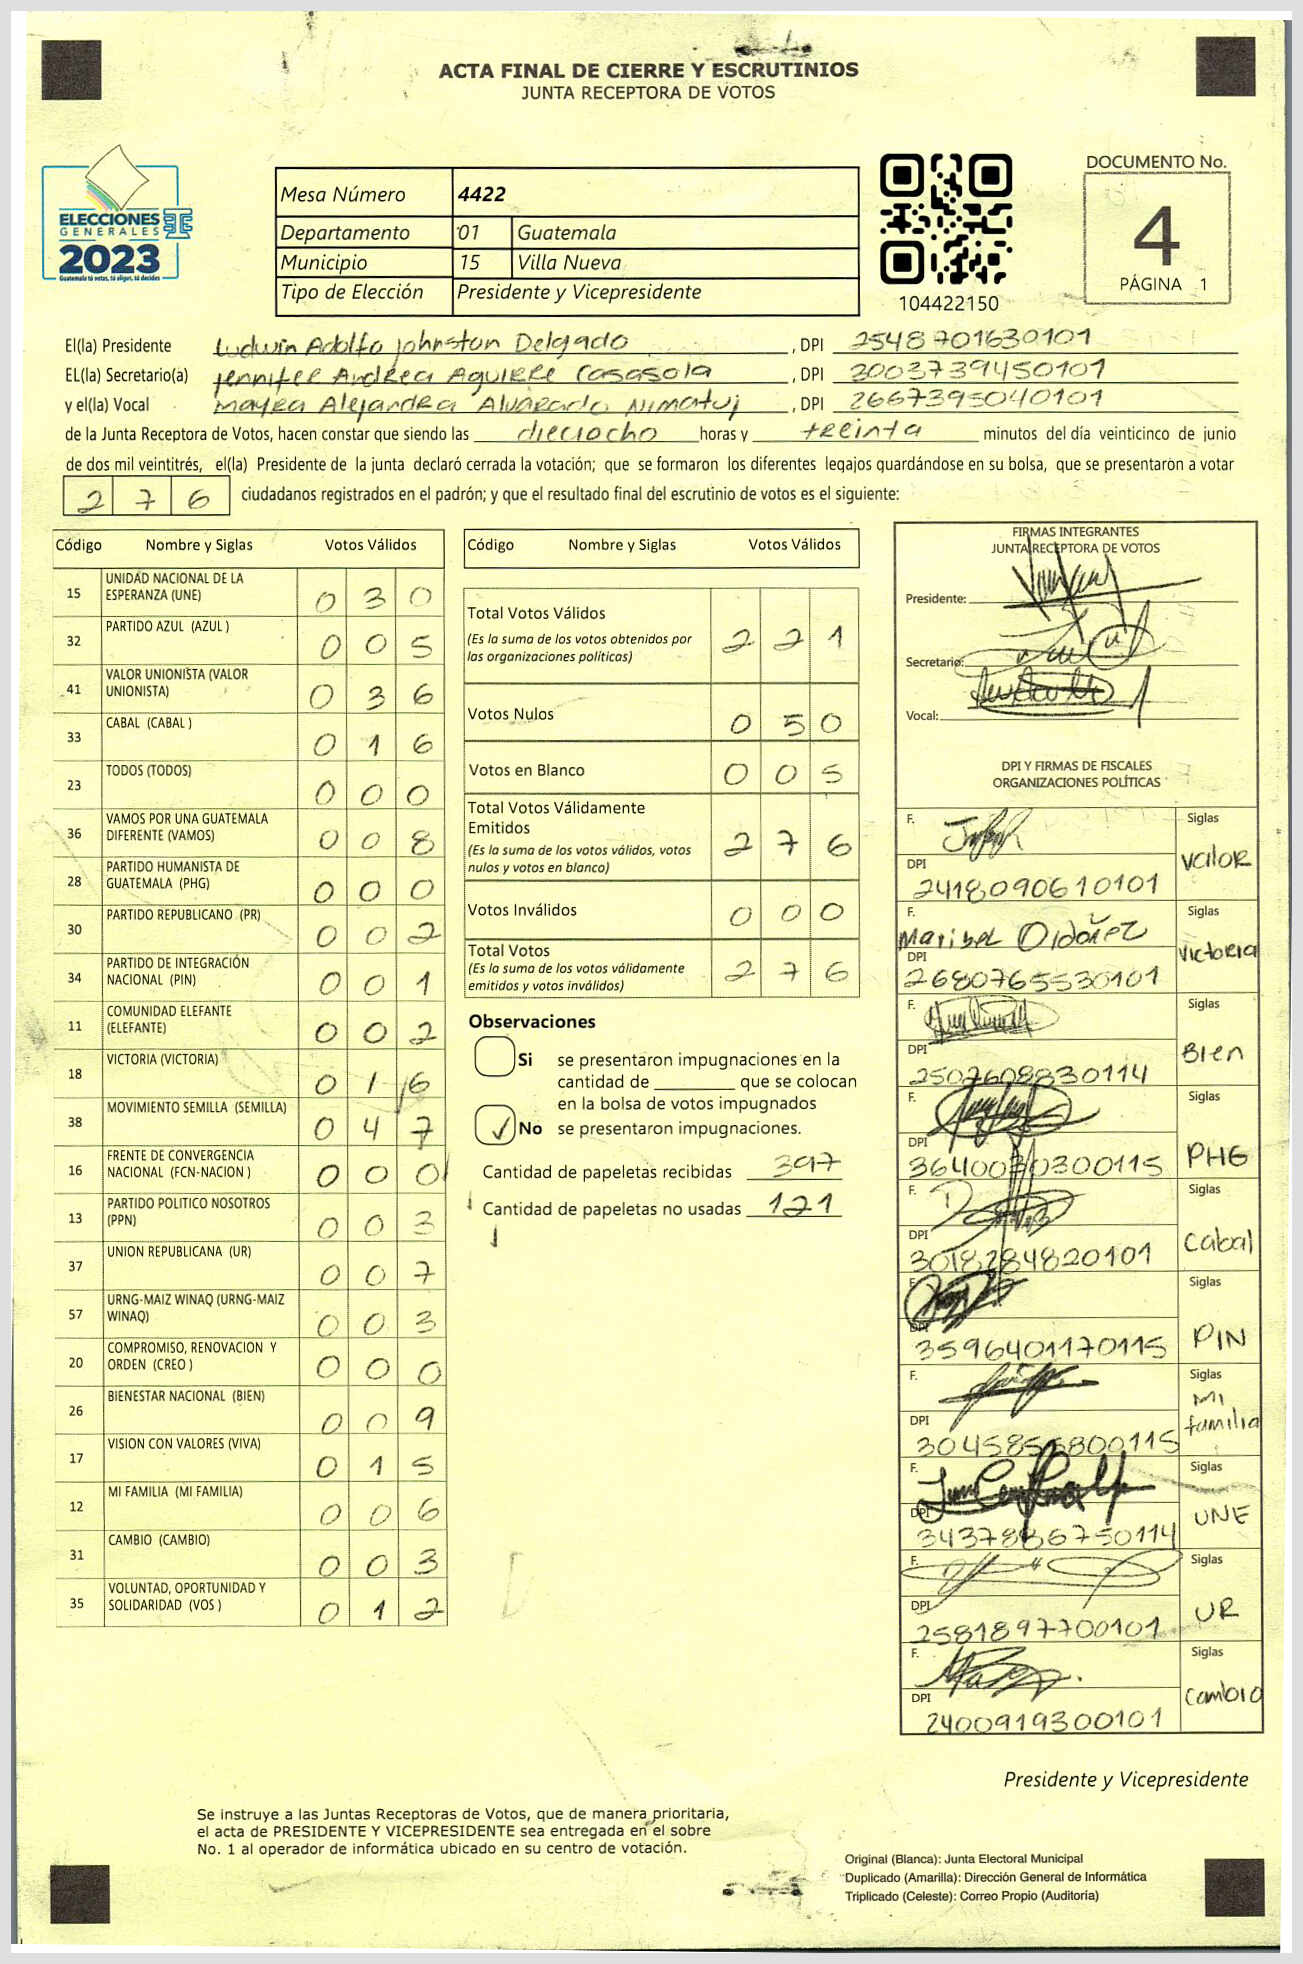 ACTA FINAL DE CIERRE Y ESCRUTINIOS
JUNTA RECEPTORA DE VOTOS
ELECCIONES
GENERALES
2023
Guatemala tú votas, tú eliges, tú decides
Mesa Número 4422
Departamento 01 Guatemala
Municipio 15 Villa Nueva
Tipo de Elección Presidente y Vicepresidente
104422150
DOCUMENTO No.
4
PÁGINA 1
El(la) Presidente Ludwin Adolfo Johnston Delgado, DPI 2548701630101
EL(la) Secretario(a) Jennifer Andrea Aguirre Casasola, DPI 3003739450101
y el(la) Vocal Mayra Alejandra Alvarado Nimatuj, DPI 2667395040101
de la Junta Receptora de Votos, hacen constar que siendo las dieciocho horas y treinta minutos del día veinticinco de junio
de dos mil veintitrés, el(la) Presidente de la junta declaró cerrada la votación; que se formaron los diferentes legajos guardándose en su bolsa, que se presentaron a votar
276 ciudadanos registrados en el padrón; y que el resultado final del escrutinio de votos es el siguiente:
Código Nombre y Siglas Votos Válidos
15 UNIDAD NACIONAL DE LA ESPERANZA (UNE) 030
32 PARTIDO AZUL (AZUL ) 005
41 VALOR UNIONISTA (VALOR UNIONISTA) 036
33 CABAL (CABAL ) 016
23 TODOS (TODOS) 000
36 VAMOS POR UNA GUATEMALA DIFERENTE (VAMOS) 008
28 PARTIDO HUMANISTA DE GUATEMALA (PHG) 000
30 PARTIDO REPUBLICANO (PR) 002
34 PARTIDO DE INTEGRACIÓN NACIONAL (PIN) 001
11 COMUNIDAD ELEFANTE (ELEFANTE) 002
18 VICTORIA (VICTORIA) 016
38 MOVIMIENTO SEMILLA (SEMILLA) 047
16 FRENTE DE CONVERGENCIA NACIONAL (FCN-NACION ) 000
13 PARTIDO POLITICO NOSOTROS (PPN) 003
37 UNION REPUBLICANA (UR) 007
57 URNG-MAIZ WINAQ (URNG-MAIZ WINAQ) 003
20 COMPROMISO, RENOVACION Y ORDEN (CREO ) 000
26 BIENESTAR NACIONAL (BIEN) 009
17 VISION CON VALORES (VIVA) 015
12 MI FAMILIA (MI FAMILIA) 006
31 CAMBIO (CAMBIO) 003
35 VOLUNTAD, OPORTUNIDAD Y SOLIDARIDAD (VOS ) 012
Código Nombre y Siglas Votos Válidos
Total Votos Válidos 221
(Es la suma de los votos obtenidos por
las organizaciones políticas)
Votos Nulos 050
Votos en Blanco 005
Total Votos Válidamente
Emitidos 276
(Es la suma de los votos válidos, votos
nulos y votos en blanco)
Votos Inválidos 000
Total Votos 276
(Es la suma de los votos válidamente
emitidos y votos inválidos)
Observaciones
Si se presentaron impugnaciones en la
cantidad de ________ que se colocan
en la bolsa de votos impugnados
✓ No se presentaron impugnaciones.
Cantidad de papeletas recibidas 397
Cantidad de papeletas no usadas 121
FIRMAS INTEGRANTES
JUNTA RECEPTORA DE VOTOS
Presidente:
Secretario:
Vocal:
DPI Y FIRMAS DE FISCALES
ORGANIZACIONES POLÍTICAS
F. Siglas
DPI valor
2418090610101
F. Siglas
Maribel Ordoñez
DPI victoria
2680765530101
F. Siglas
DPI Bien
2507608830114
F. Siglas
DPI PHG
3640030300115
F. Siglas
DPI Cabal
3018284820101
F. Siglas
DPI PIN
3596401170115
F. Siglas
DPI MI familia
3045856800115
F. Siglas
DPI UNE
3437886750114
F. Siglas
DPI UR
2581897700101
F. Siglas
DPI cambio
2400919300101
Presidente y Vicepresidente
Se instruye a las Juntas Receptoras de Votos, que de manera prioritaria,
el acta de PRESIDENTE Y VICEPRESIDENTE sea entregada en el sobre
No. 1 al operador de informática ubicado en su centro de votación.
Original (Blanca): Junta Electoral Municipal
Duplicado (Amarilla): Dirección General de Informática
Triplicado (Celeste): Correo Propio (Auditoría)